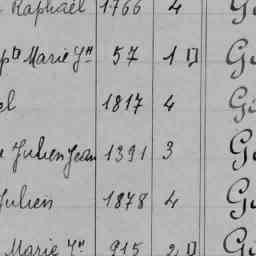 Raphaël 1766 4 G
pte Marie Jn 57 1 G
el 1817 4 G
e Julien Jean 1391 3 G
Julien 1878 4 G
Marie Jn 915 2 G